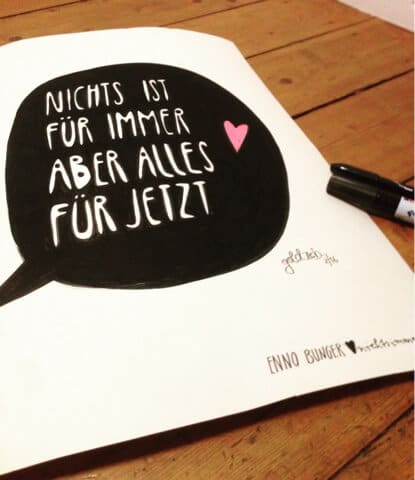 NICHTS IST
FÜR IMMER
ABER ALLES
FÜR JETZT
ENNO BUNGER